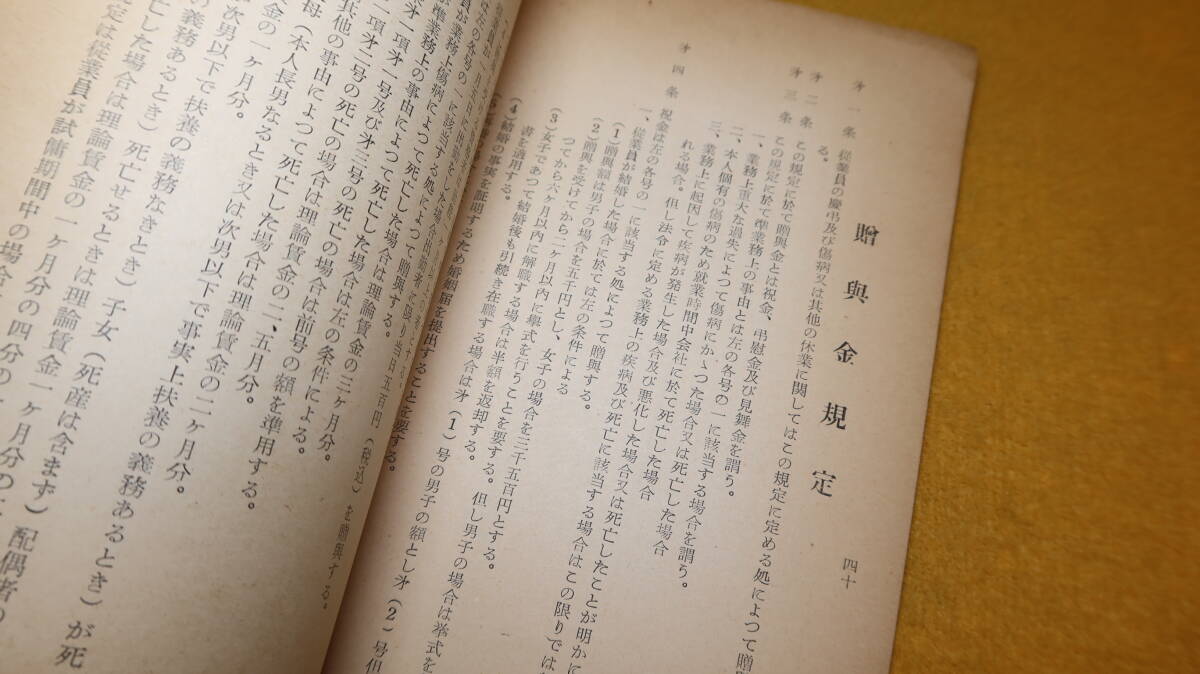 贈與金規定
四十
才一条 従業員の慶弔及び傷病又は其他の休業に関してはこの規定に定める処によつて贈
る。
才二条 この規定に於て贈興金とは祝金、弔慰金及び見舞金を謂う。
才三条 この規定に於て準業務上の事由とは左の各号の一に該当する場合を謂う。
一、業務上重大な過失によつて傷病にかゝつた場合又は死亡した場合
二、本人個有の傷病のため就業時間中会社に於て死亡した場合
三、業務上に起因して疾病が発生した場合及び悪化した場合又は死亡したことが明かに
れる場合。但し法令に定める業務上の疾病及び死亡に該当する場合はこの限りでは
才四条 祝金は左の各号の一に該当する処によつて贈興する。
一、従業員が結婚した場合に於ては左の条件による
(1)贈興額は男子の場合を五千円とし、女子の場合を三千五百円とする。
(2)贈興を受けてから二ヶ月以内に擧式を行うことを要する。但し男子の場合は挙式を
つてから六ヶ月以内に解職する場合は半額を返却する。
(3)女子であつて結婚後も引続き在職する場合は才(1)号の男子の額とし才(2)号但
書を適用する。
(4)結婚の事実を証明するため婚姻届を提出することを要する。
当日五百円(税込)を贈興する。
員が業務上傷病によつて死亡した場合
は左の各号の一に該当する処によつて贈興する。
準業務上の事由によつて死亡した場合は理論賃金の三ヶ月分。
才一項才一号及び才三号の死亡の場合は左の条件による。
一項才二号の死亡の場合は前号の額を準用する。
其他の事由によつて死亡した場合は理論賃金の二、五月分。
母(本人長男なるとき又は次男以下で事実上扶養の義務あるとき)が死
金の一ヶ月分。
次男以下で扶養の義務なきとき)子女(死産は含まず)配偶者の
の義務あるとき)死亡せるときは理論賃金一ヶ月分の
亡した場合は理論賃金の一ヶ月分の四分の一
定は従業員が試傭期間中の場合